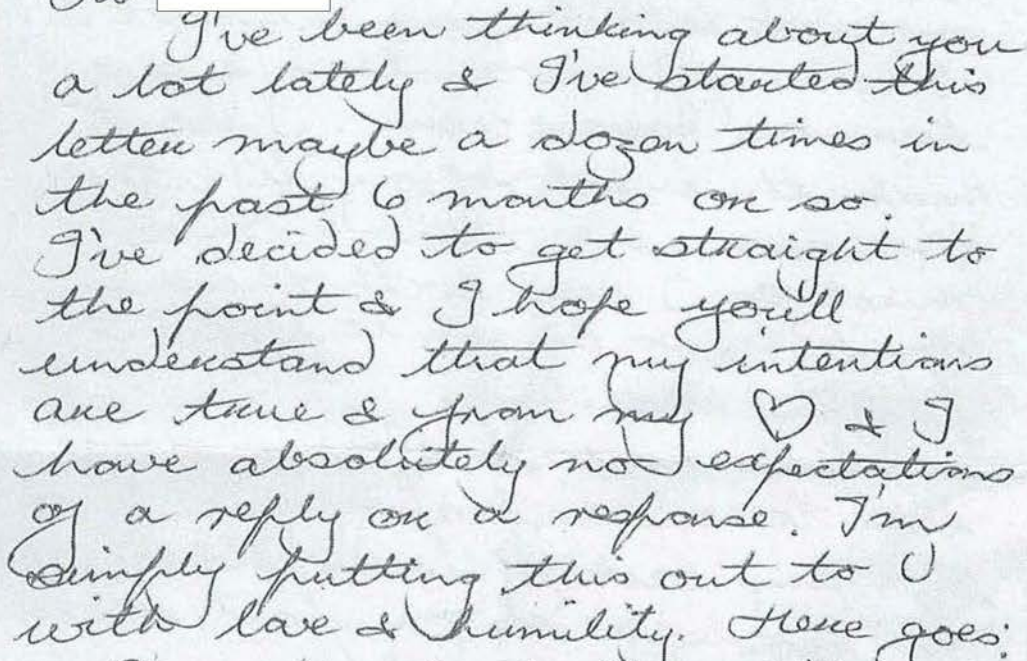 I've been thinking about you
a lot lately & I've started this
letter maybe a dozen times in
the past 6 months or so.
I've decided to get straight to
the point & I hope you'll
understand that my intentions
are true & from my ♡ & I
have absolutely no expectations
of a reply or a response. I'm
simply putting this out to U
with love & humility. Here goes: